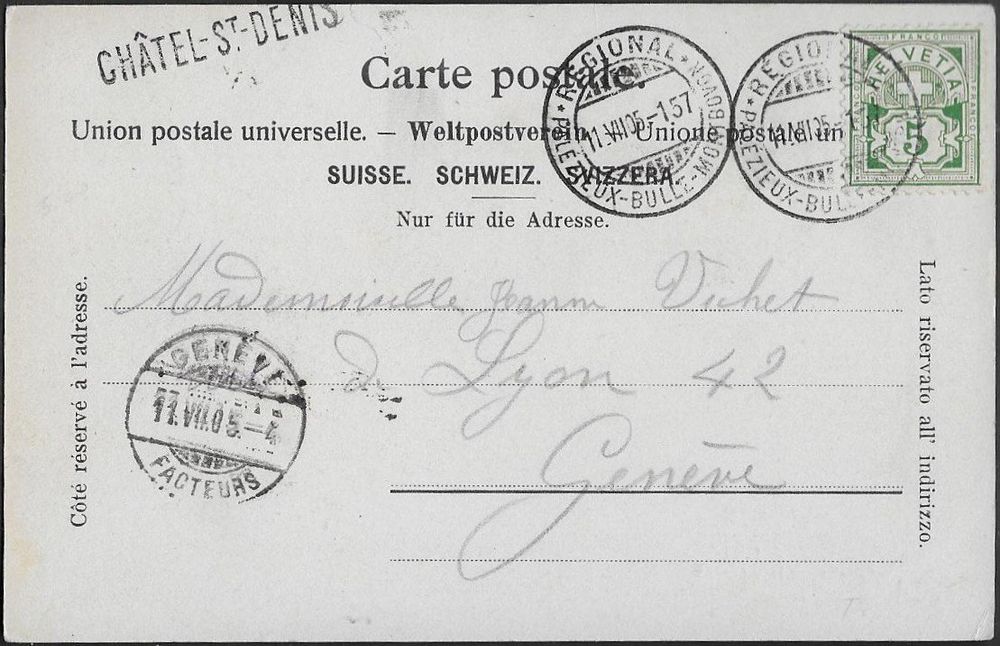 CHÂTEL-ST-DENIS
Carte postale.
Union postale universelle. – Weltpostverein. – Unione postale un
SUISSE. SCHWEIZ. SVIZZERA
Nur für die Adresse.
RÉGIONAL
11.VII.05.-157
PALÉZIEUX-BULLE-MONTBOVON
RÉGION
11.VII.05.-1
PALÉZIEUX-BULLE
FRANCO
HELVETIA
FRANCO
FRANCO
5
Mademoiselle Jeanne Vuhet
d Lyon 42
Genève
GENÈVE
11.VII.05.-4
FACTEURS
Côté réservé à l'adresse.
Lato riservato all' indirizzo.